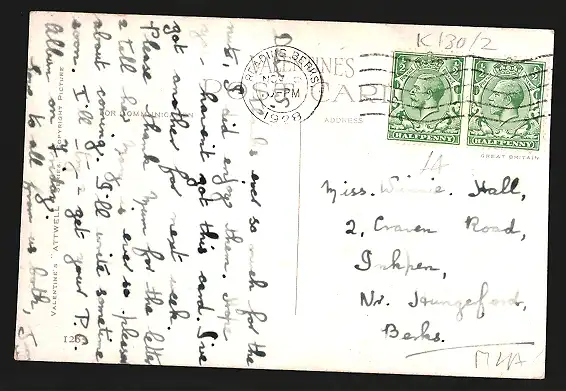 K 130/2
VALENTINE'S
POST CARD
FOR COMMUNICATION
ADDRESS
READING BERKS.
NOV
PM
1928
HALFPENNY
HALFPENNY
GREAT BRITAIN
Miss. Winnie. Hall,
2, Craven Road,
Inkpen,
Nr. Hungerford,
Berks.
VALENTINE'S "ATTWELL"
COPYRIGHT PICTURE
ever so much for the
nuts, I did enjoy them. Hope
you haven't got this card. I've
got another for next week.
Please thank Mum for the lette
& tell her is ever so please
about coming. I'll write sometime
soon. I'll try & get your P.C.
Album on Friday.
Love to all from us both,